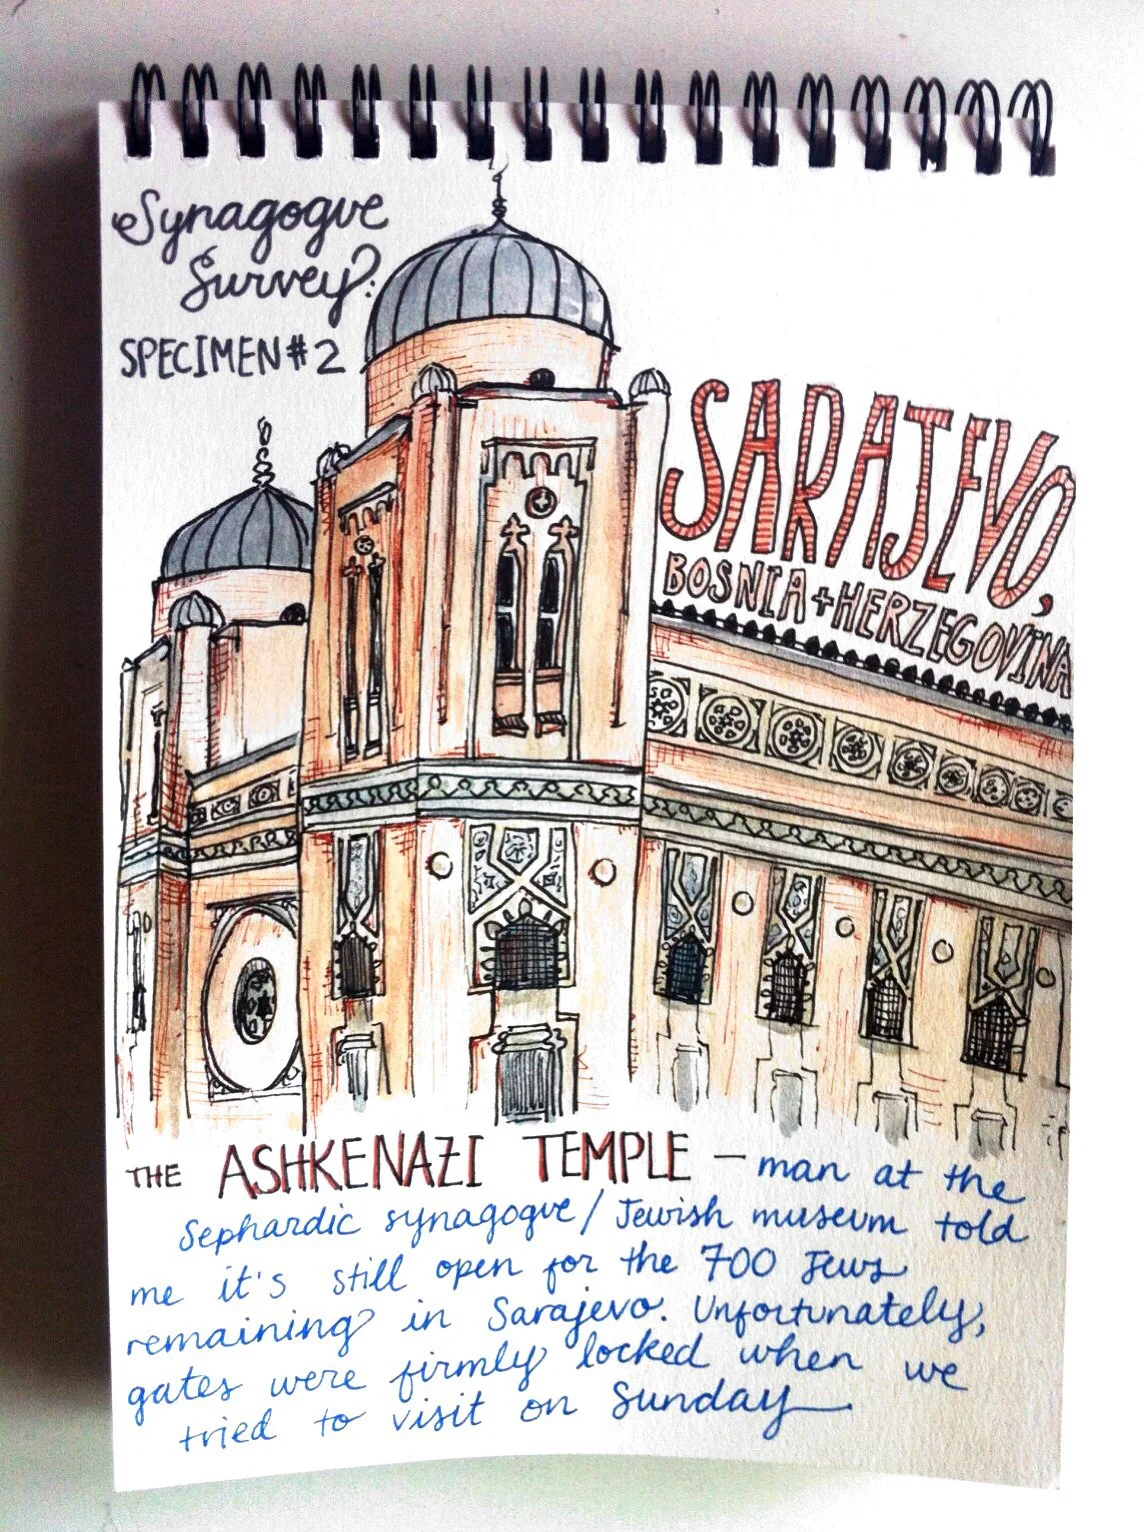 Synagogue
Survey:
SPECIMEN #2
SARAJEVO,
BOSNIA + HERZEGOVINA
THE ASHKENAZI TEMPLE — man at the
Sephardic synagogue / Jewish museum told
me it's still open for the 700 Jews
remaining in Sarajevo. Unfortunately,
gates were firmly locked when we
tried to visit on Sunday